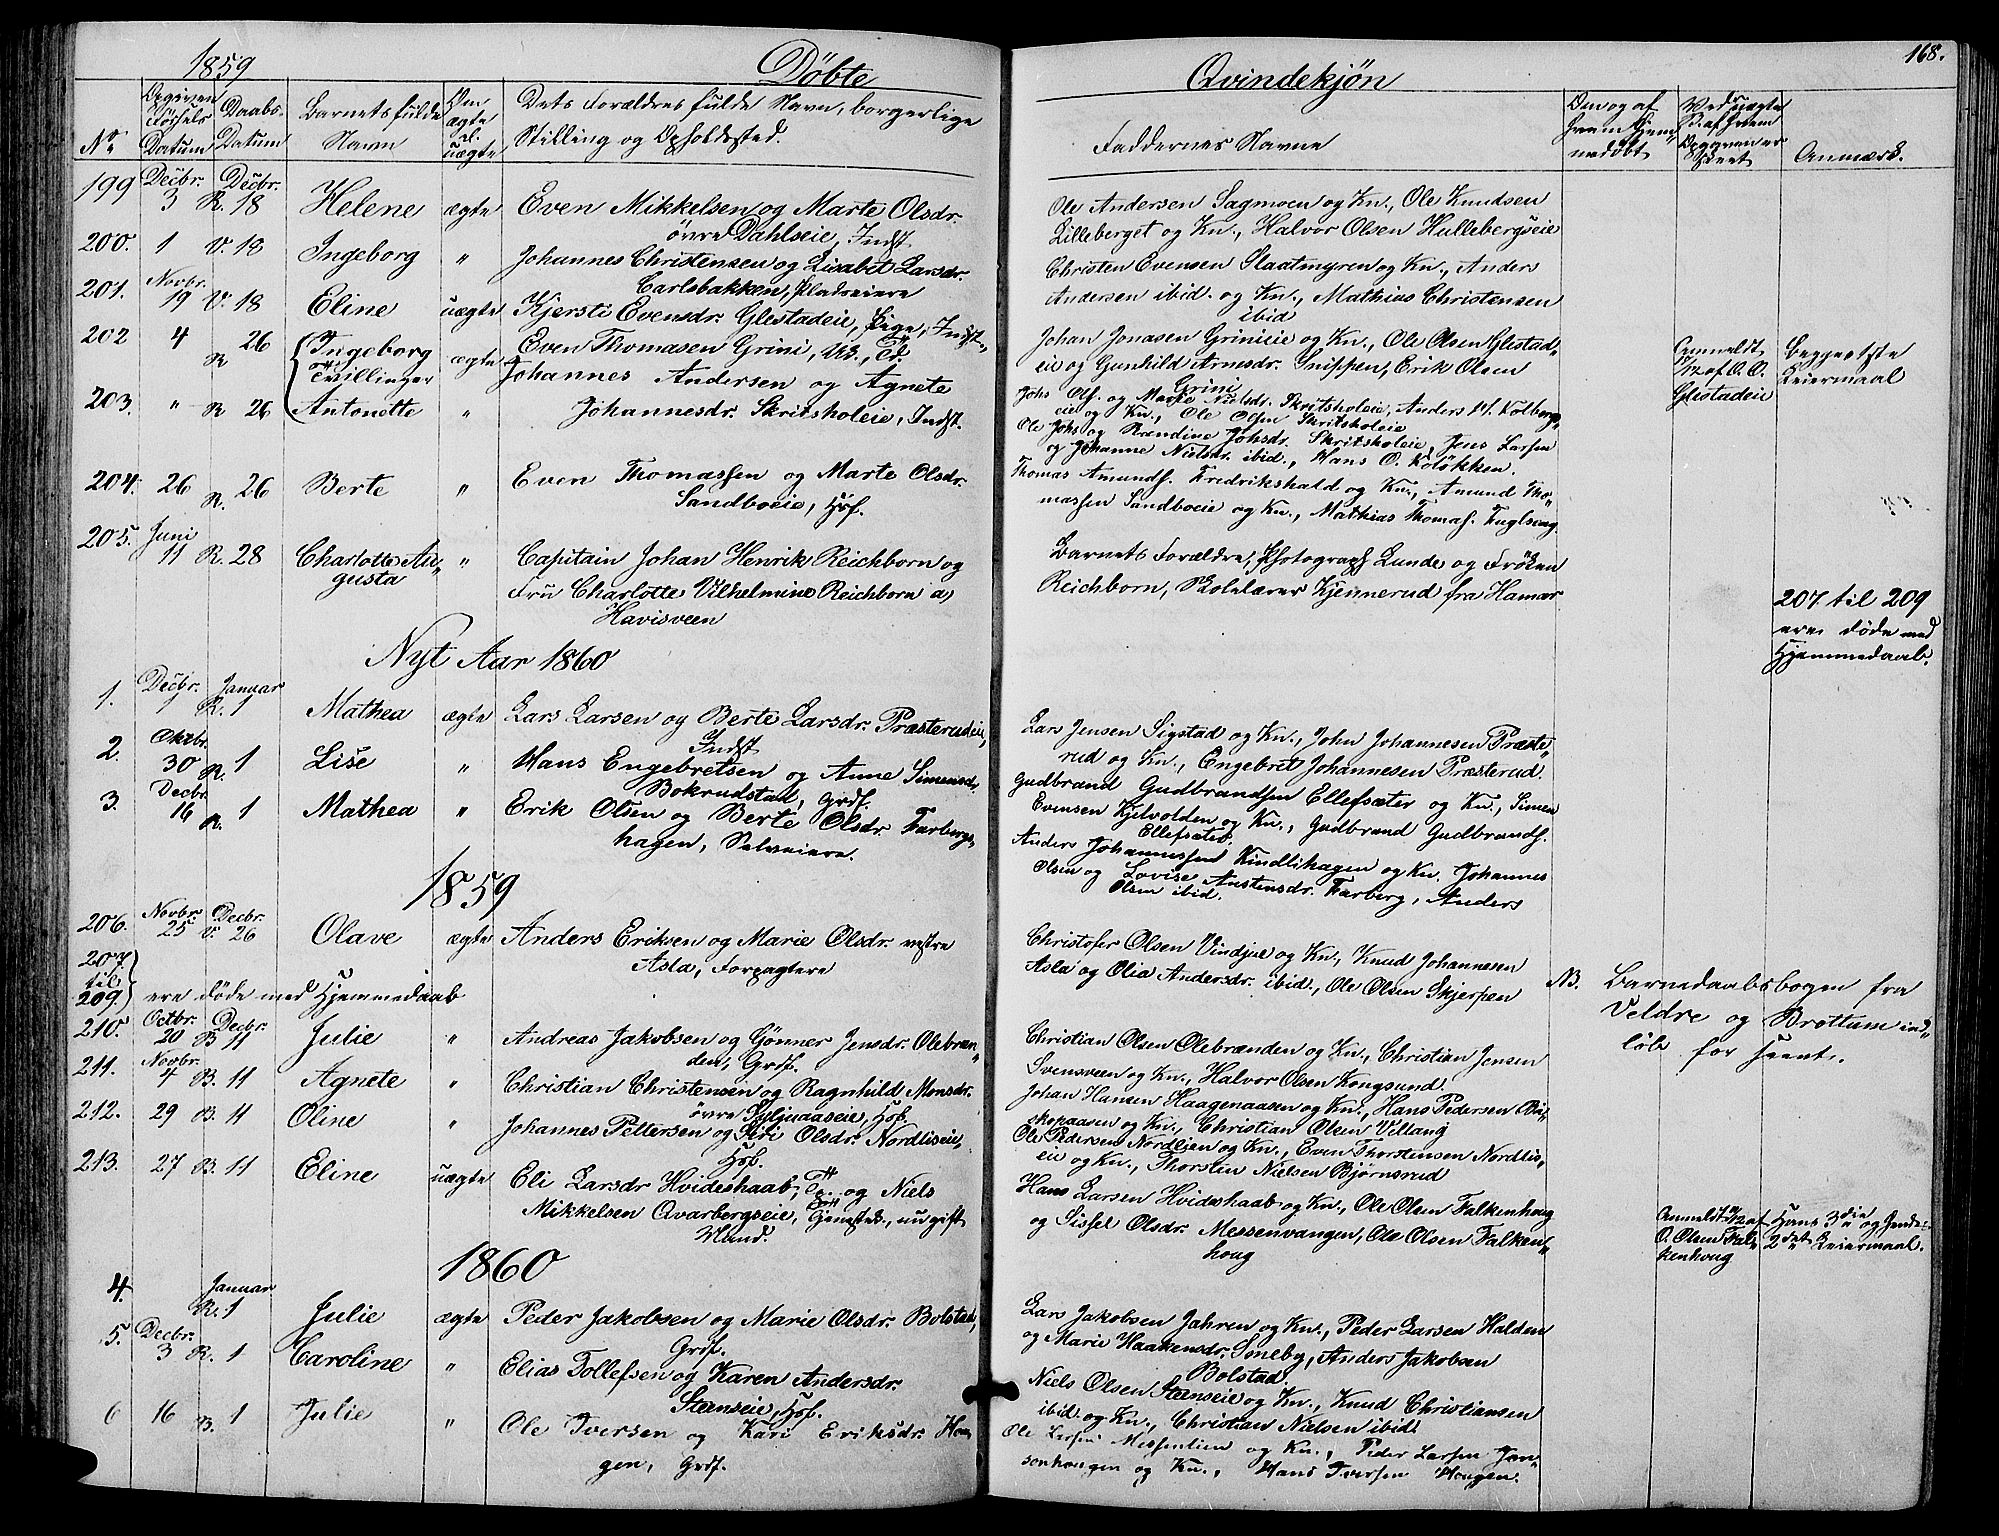 168.
1859 Døbte Qvindekjøn
No.
Opgiven Fødsels Datum
Daabs- Datum
Barnets fulde Navn
Om ægte el. uægte
Dets Forældres fulde Navn, borgerlige Stilling og Opholdssted.
Faddernes Navne
Om og af hvem hjemmedøbt
Ved uægte B. af hvem Opgaven er skeet
Anmærk.
199 Decbr. 3 Decbr. R. 18 Helene ægte Even Mikkelsen og Marte Olsdr.
øvre Dahlseie, Indst
Ole Andersen Sagmoen og Kn., Ole Knudsen
Lilleberget og Kn., Halvor Olsen Hullebergseie
200. 1 V. 18 Ingeborg " Johannes Christensen og Lisabet Larsdr.
Carlsbakken, Pladseiere
Christen Evensen Slaatmyren og Kn., Anders
Andersen ibid. og Kn., Mathias Christensen
ibid
201. Novbr. 19 V. 18 Eline uægte Kjersti Evensdr. Glestadeie, Pige, Indst.,
Even Thomasen Grini, UK., Td.
Johan Jonasen Grinieie og Kn., Ole Olsen Glestad-
eie og Gunhild Arnesdr. Snippen, Erik Olsen
Grini
Anmeldt
af O. O.
Glestadeie
Begges 1ste
Leiermaal
202 4 R 26 Ingeborg
Tvillinger
ægte Johannes Andersen og Agnete
203. " R 26 Antonette " Johannesdr. Skritsholeie, Indst.
Johs Ols. og Marie Nielsdr. Skritsholeie, Anders M. Kolbergs-
eie og Kn., Ole Olsen Skritsholeie
Ole Johs og Randine Johsdr. Skritsholeie, Jens Larsen
og Johanne Nielsdr. ibid., Hans O. Koløkken.
204. 26 R. 26 Berte " Even Thomassen og Marte Olsdr.
Sandboeie, Hsf.
Thomas Amunds. Fredrikshald og Kn., Amund Tho-
massen Sandboeie og Kn., Mathias Thomas. Fuglseng.
205. Juni 11 R. 28 Charlotte Au-
gusta
" Capitain Johan Henrik Reichborn og
Fru Charlotte Vilhelmine Reichborn a)
Havisveen
Barnets Forældre, Photograph Lunde og Frøken
Reichborn, Skolelærer Kjennerud fra Hamar
207 til 209
ere døde med
Hjemmedaab.
Nyt Aar 1860
1. Decbr. 1 Januar R. 1 Mathea ægte Lars Larsen og Berte Larsdr. Præsterudeie,
Indst
Lars Jensen Sigstad og Kn., John Johannesen Præste-
rud og Kn., Engebret Johannesen Præsterud.
2. Oktbr. 30 R. 1 Lise " Hans Engebretsen og Anne Simensdr.
Bokrudstad, Grdf.
Gudbrand Gudbrandsen Ellefsæter og Kn., Simen
Evensen Kjelvolden og Kn., Gudbrand Gudbrands.
Ellefsæter.
3. Decbr. 16 R. 1 Mathea " Erik Olsen og Berte Olsdr. Farbergs-
hagen, Selveiere.
Anders Johannessen Kindlihagen og Kn. Johannes
Olsen og Lovise Austensdr. Farberg, Anders
Olsen ibid.
1859
206. Novbr. 25 Decbr. V. 26 Olave ægte Anders Eriksen og Marie Olsdr. vestre
Asla, Forpagtere
Christofer Olsen Vindjue og Kn., Knud Johannesen
Asla og Olia Andersdr. ibid., Ole Olsen Skjerpen
207.
til
209. ere døde med Hjemmedaab
NB. Barnedaabsbogen fra
Veldre og Brøttum ind-
løb for seent.
210. Octbr. 20 Decbr. B 11 Julie " Andreas Jakobsen og Gønner Jensdr. Olebræn-
den, Grdf.
Christian Olsen Olebrænden og Kn., Christian Jensen
Svensveen og Kn., Halvor Olsen Kongsund.
211. Novbr. 4 B. 11 Agnete " Christian Christensen og Ragnhild Monsdr.
øvre Huljuaaseie, Hsf.
Johan Hansen Haagenaasen og Kn., Hans Pedersen Bi-
skopaasen og Kn., Christian Olsen Villang
212. 29 B. 11 Oline " Johannes Pettersen og Siri Olsdr. Nordlieie,
Hsf.
Ole Pedersen Nordlien og Kn., Even Thorstensen Nordli-
eie og Kn., Thorsten Nielsen Bjørnsrud
213. 27 B. 11 Eline uægte Eli Larsdr Hvideshaab, Tp. og Niels
Mikkelsen Qvarbergseie, Tjenestek., nu gift
Mand.
Hans Larsen Hvideshaab og Kn., Ole Olsen Falkenhoug
og Sissel Olsdr. Messenvangen, Ole Olsen Falken-
houg
Anmeldt af
O. Olsen Fal-
kenhoug
Hans 3die og hendes
2det Leiermaal.
1860
4. Januar R. 1 Julie ægte Peder Jakobsen og Marie Olsdr. Bolstad,
Grdf.
Lars Jakobsen Jahren og Kn., Peder Larsen Halden
og Marie Haakensdr. Smeby, Anders Jakobsen
Bolstad.
5. Decbr. 3 R. 1 Caroline " Elias Tollefsen og Karen Andersdr.
Steenseie, Hsf.
Niels Olsen Steenseie og Kn., Knud Christiansen
ibid. og Kn., Christian Nielsen ibid.
6 16 B. 1 Julie " Ole Iversen og Kari Eriksdr. Hou-
gen, Grdf.
Ole Larsen Messenlien og Kn., Peder Larsen Jan-
sonhougen og Kn., Hans Iversen Hougen.